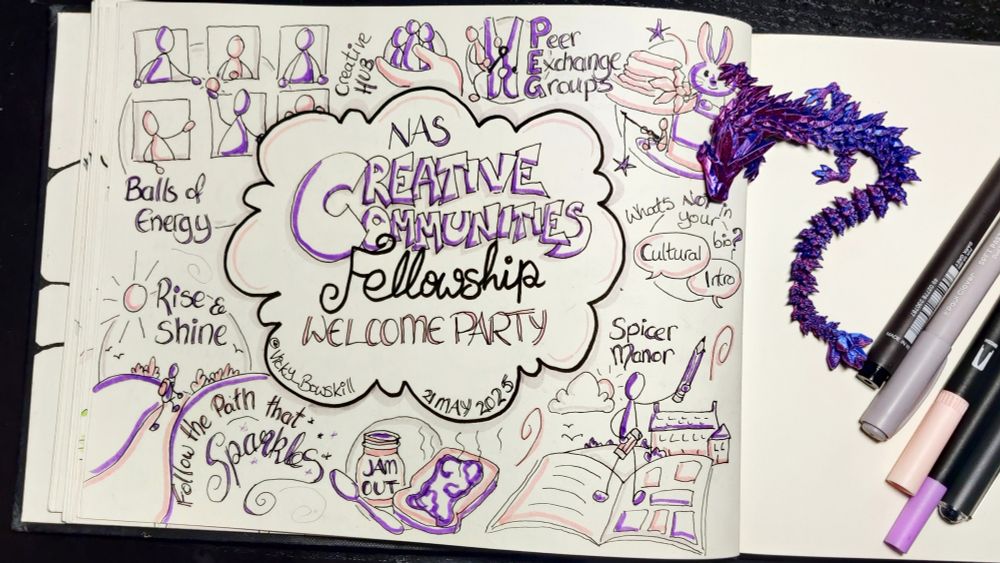 NAS
CREATIVE
COMMUNITIES
Fellowship
WELCOME PARTY
@Vicky_Bowskill
21 MAY 2025
Creative
HUB
Peer
Exchange
Groups
What's Not in
your bio?
Cultural
Intro
Spicer
Manor
JAM
OUT
Follow the Path that
Sparkles
Rise &
Shine
Balls of
Energy